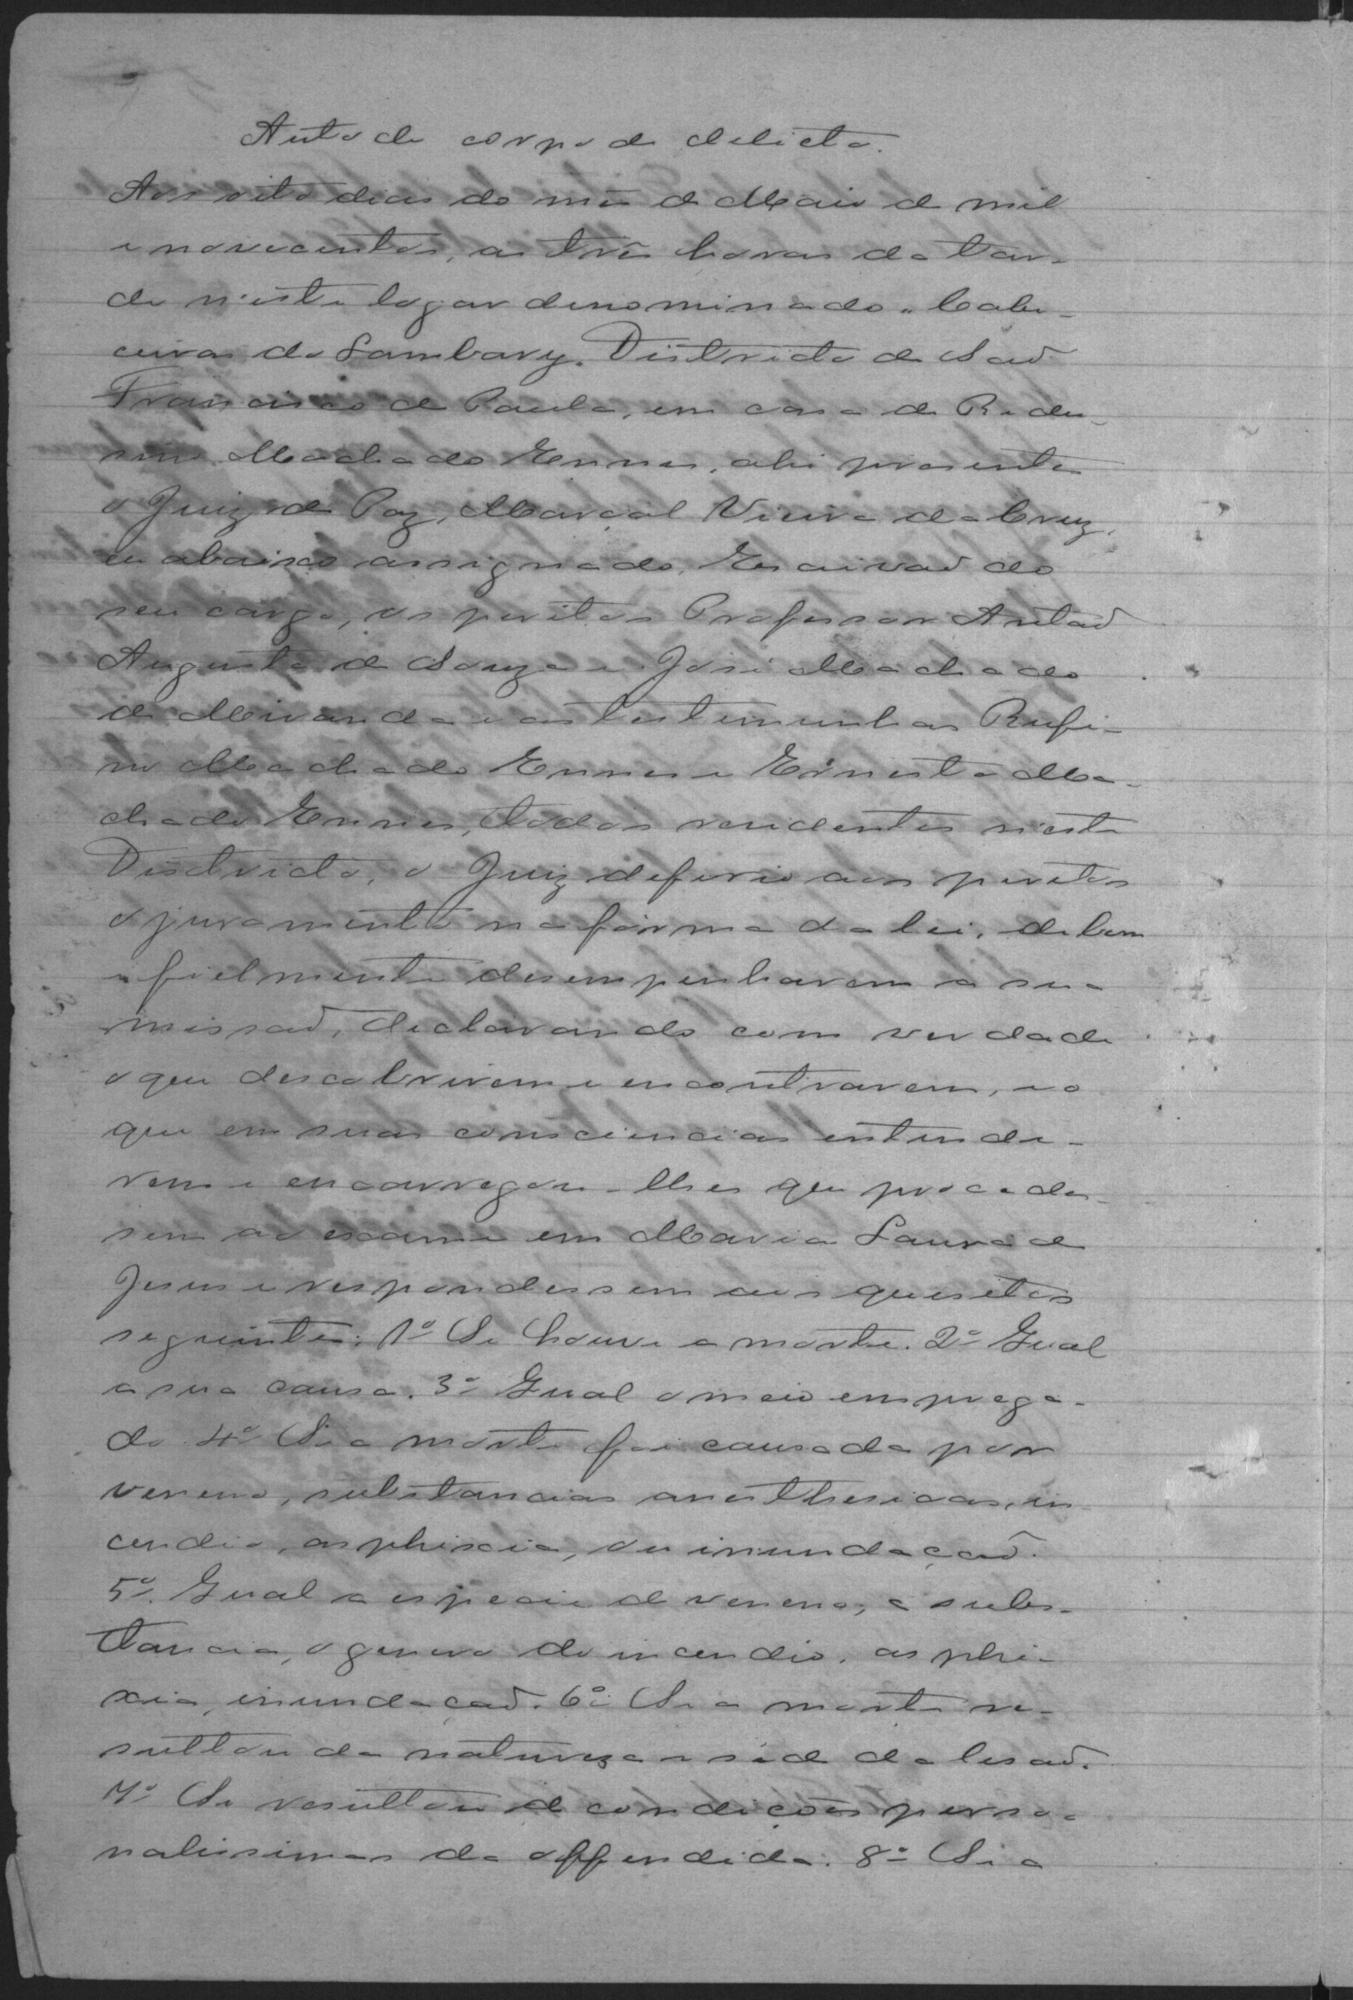 Auto de corpo de delicto.
Aos oito dias do mes de Maio de mil
e novecentos, as tres horas da tar-
de n'este logar denominado "Cabe-
ceiras do Lambary, Districto de São
Francisco de Paula, em casa de
Machado Ennes, ahi presentes
o Juiz de Paz, Marçal Vieira da Cruz,
eu abaixo assignado, Escrivaõ do
seu cargo, os peritos Professor Antaõ
Augusto de Souza e José Machado
de Miranda e as testemunhas Rufi-
no Machado Ennes e Ernesto Ma-
chado Ennes, todos residentes n'este
Districto, o Juiz deferio aos peritos
o juramento na forma da lei, de bem
e fielmente desempenharem a sua
missaõ, declarando com verdade
o que descobrirem e encontrarem, e o
que em suas consciencias entende-
rem e encarregou-lhes que procedes-
sem ao exame em Maria Laura de
Jesus e respondessem aos quesitos
seguintes: 1º Se houve a morte. 2º Qual
a sua causa. 3º Qual o meio emprega-
do 4º Se a morte foi causada por
veneno, substancias anesthesicas, in-
cendio, asphixia, ou inundaçaõ.
5º. Qual a especie de veneno, a subs-
tancia, o genero do incendio, asphi-
xia, inundaçaõ. 6º Se a morte re-
sultou da natureza e séde da lesaõ.
7º Se resultou de condições perso-
nalissimas da offendida. 8º Se a